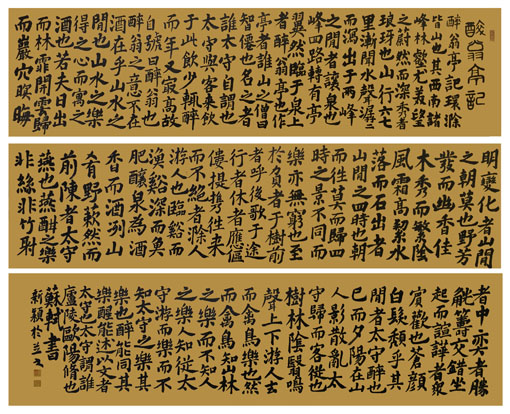 醉翁亭記
醉翁亭記環滁
皆山也其西南諸
峰林壑尤美望
之蔚然而深秀者
琅玡也山行六七
里漸聞水聲潺潺
而瀉出于兩峰
之間者讓泉也
峰回路轉有亭
翼然臨于泉上
者醉翁亭也作
亭者誰山之僧曰
智僊也名之者
誰太守自謂也
太守與客來飲
于此飲少輒醉
而年又最高故
自號曰醉翁也
醉翁之意不在
酒在乎山水之
間也山水之樂
得之心而寓之
酒也若夫日出
而林霏開雲歸
而巖穴暝晦
明變化者山間
之朝暮也野芳
發而幽香佳
木秀而繁陰
風霜高潔水
落而石出者
山間之四時也朝
而往暮而歸四
時之景不同而
樂亦無窮也至
於負者于樹前
者呼後歌于途
行者休者應傴
僂提攜往來
而不絕者滁人
游人也臨谿而
漁谿深而魚
肥釀泉為酒
香而酒冽山
肴野蔌然而
前陳者太守
燕也燕酣之樂
非絲非竹射
者中弈者勝
觥籌交錯坐
起而諠譁者眾
賓歡也蒼顏
白髮頹乎其
間者太守醉也
已而夕陽在山
人影散亂太
守歸而客從也
樹林陰翳鳴
聲上下游人去
而禽鳥樂也然
而禽鳥知山林
之樂而不知人
之樂人知從太
守游而樂而不
知太守之樂其
樂也醉能同其
樂醒能述以文者
太守也太守謂誰
廬陵歐陽脩也
蘇軾書